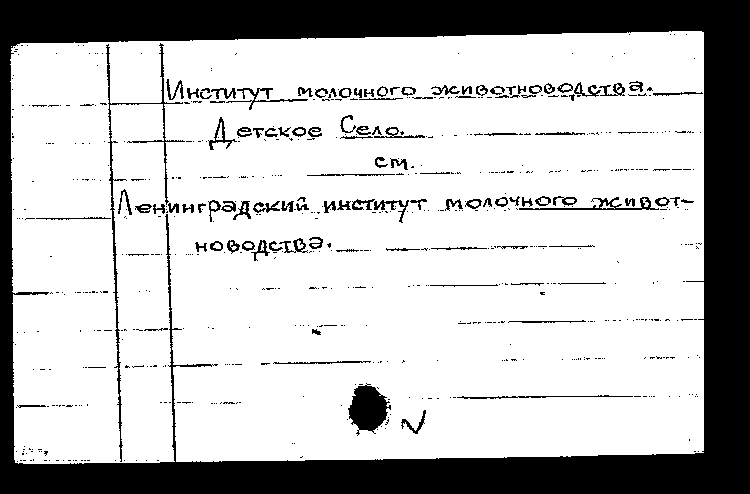 Институт молочного животноводства.
Детское Село.
см.
Ленинградский институт молочного живот-
новодства.